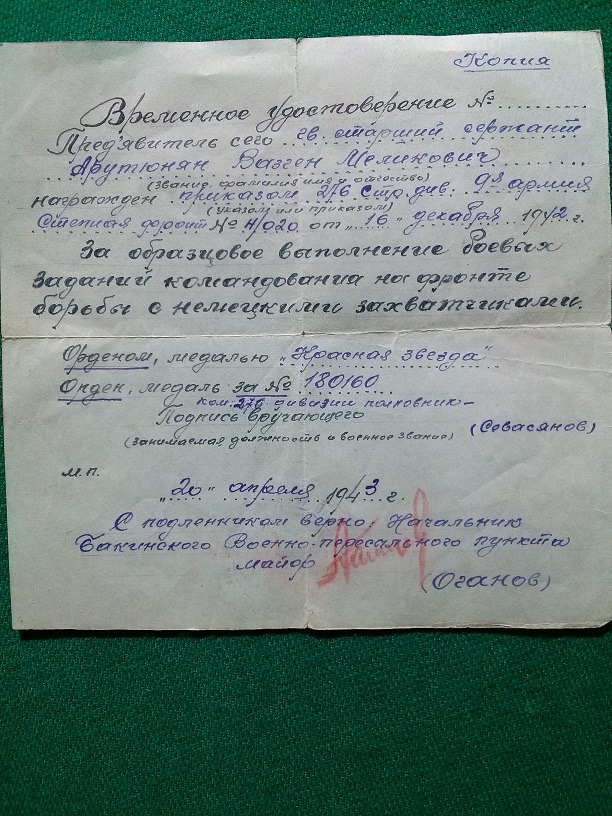 Копия
Временное удостоверение №
Пред'явитель сего гв. старший сержант
Арутюнян Вазген Меликович
(звание, фамилия имя и отчество)
награжден приказом 276 Стр. див. 9я армия
(указом или приказом)
Степная фронт № н/020 от „16" декабря 1942 г.
За образцовое выполнение боевых
заданий командования на фронте
борьбы с немецкими захватчиками.
Орденом, медалью „Красная звезда"
Орден, медаль за № 180160
ком. 276 дивизии полковник –
Подпись вручающего
(Севасянов)
(занимаемая должность и военное звание)
М.П.
„20" апреля 1943 г.
С подленником верно: Начальник
Бакинского Военно-пересального пункта
майор
(Оганов)